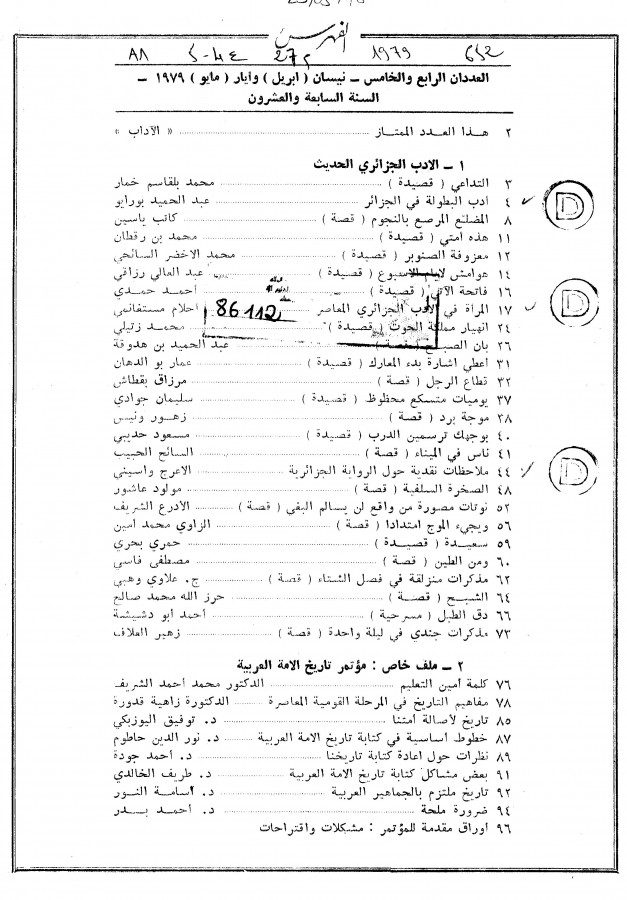 الفهرس
٨٨ ٤-٥ ع ٢٧ م 1979 652
العددان الرابع والخامس ــ نيسان ( ابريل ) وايار ( مايو ) ١٩٧٩ ــ
السنة السابعة والعشرون
٢ هــذا العدد الممتــاز « الآداب »
١ ــ الادب الجزائري الحديث
٣ التداعي ( قصيدة ) محمد بلقاسم خمار
٤ أدب البطولة في الجزائر عبد الحميد بورايو
٨ المضلع المرصع بالنجوم ( قصة ) كاتب ياسين
١١ هذه أمتي ( قصيدة ) محمد بن رقطان
١٢ معزوفة الصنوبر ( قصيدة ) محمد الاخضر السائحي
١٤ هوامش لايام الاسبوع ( قصيدة ) عبد العالي رزاقي
١٦ فاتحة الآتي ( قصيدة ) أحمد حمدي
١٧ المرأة في الادب الجزائري المعاصر احلام مستغانمي
86112
٢٤ انهيار مملكة الحوت ( قصيدة ) محمد زتيلي
٢٦ بان الصبح ( قصة ) عبد الحميد بن هدوقة
٣١ أعطي اشارة بدء المعارك ( قصيدة ) عمار بو الدهان
٣٢ قطاع الرجل ( قصة ) مرزاق بقطاش
٣٧ يوميات متسكع محظوظ ( قصيدة ) سليمان جوادي
٣٨ موجة برد ( قصة ) زهور ونيس
٤٠ بوجهك ترسمين الدرب ( قصيدة ) مسعود حديبي
٤١ ناس في الميناء ( قصة ) السائح الحبيب
٤٤ ملاحظات نقدية حول الرواية الجزائرية الاعرج واسيني
٤٨ الصخرة السلفية ( قصة ) مولود عاشور
٥٢ نوتات مصورة من واقع لن يسالم البقي ( قصة ) الادرع الشريف
٥٦ ويجيء الموج امتدادا ( قصة ) الزاوي محمد امين
٥٩ سعيدة ( قصيدة ) حمري بحري
٦٠ ومن الطين ( قصة ) مصطفى فاسي
٦٢ مذكرات منزلقة في فصل الشتاء ( قصة ) ج. علاوي وهبي
٦٤ الشبح ( قصة ) حرز الله محمد صالح
٦٦ دق الطبل ( مسرحية ) أحمد ابو دشيشة
٧٣ مذكرات جندي في ليلة واحدة ( قصة ) زهير العلاف
٢ ــ ملف خاص : مؤتمر تاريخ الامة العربية
٧٦ كلمة أمين التعليم الدكتور محمد احمد الشريف
٧٨ مفاهيم التاريخ في المرحلة القومية المعاصرة الدكتورة زاهية قدورة
٨٥ تاريخ لأصالة أمتنا د. توفيق اليوزبكي
٨٧ خطوط اساسية في كتابة تاريخ الامة العربية د. نور الدين حاطوم
٨٩ نظرات حول اعادة كتابة تاريخنا د. أحمد جودة
٩١ بعض مشاكل كتابة تاريخ الامة العربية د. طريف الخالدي
٩٢ تاريخ ملتزم بالجماهير العربية د. أسامة النور
٩٤ ضرورة ملحة د. أحمد بدر
٩٦ أوراق مقدمة للمؤتمر : مشكلات واقتراحات
D
D
D